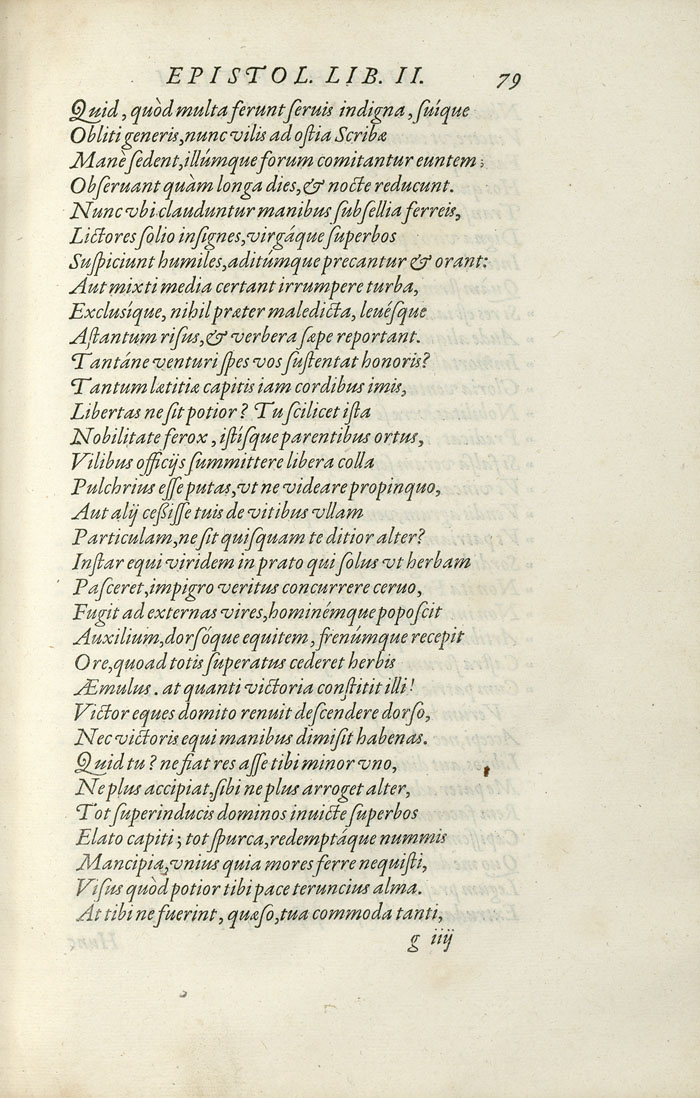 EPISTOL. LIB. II. 79
Quid, quòd multa ferunt ſeruis indigna, ſuíque
Obliti generis, nunc vilis ad oſtia Scribæ
Manè ſedent, illúmque forum comitantur euntem;
Obſeruant quàm longa dies, & nocte reducunt.
Nunc vbi clauduntur manibus ſubſellia ferreis,
Lictores ſolio inſignes, virgáque ſuperbos
Suſpiciunt humiles, aditúmque precantur & orant:
Aut mixti media certant irrumpere turba,
Excluſíque, nihil præter maledicta, leuéſque
Aſtantum riſus, & verbera ſæpe reportant.
Tantáne venturi ſpes vos ſuſtentat honoris?
Tantum lætitiæ capitis iam cordibus imis,
Libertas ne ſit potior? Tu ſcilicet iſta
Nobilitate ferox, iſtíſque parentibus ortus,
Vilibus officijs ſummittere libera colla
Pulchrius eſſe putas, vt ne videare propinquo,
Aut alij ceßiſſe tuis de vitibus vllam
Particulam, ne ſit quiſquam te ditior alter?
Inſtar equi viridem in prato qui ſolus vt herbam
Paſceret, impigro veritus concurrere ceruo,
Fugit ad externas vires, hominémque popoſcit
Auxilium, dorſóque equitem, frenúmque recepit
Ore, quoad totis ſuperatus cederet herbis
Æmulus. at quanti victoria conſtitit illi!
Victor eques domito renuit deſcendere dorſo,
Nec victoris equi manibus dimiſit habenas.
Quid tu? ne fiat res aſſe tibi minor vno,
Ne plus accipiat, ſibi ne plus arroget alter,
Tot ſuperinducis dominos inuicte ſuperbos
Elato capiti; tot ſpurca, redemptáque nummis
Mancipia, vnius quia mores ferre nequiſti,
Viſus quòd potior tibi pace teruncius alma.
At tibi ne fuerint, quæſo, tua commoda tanti,
g iiij